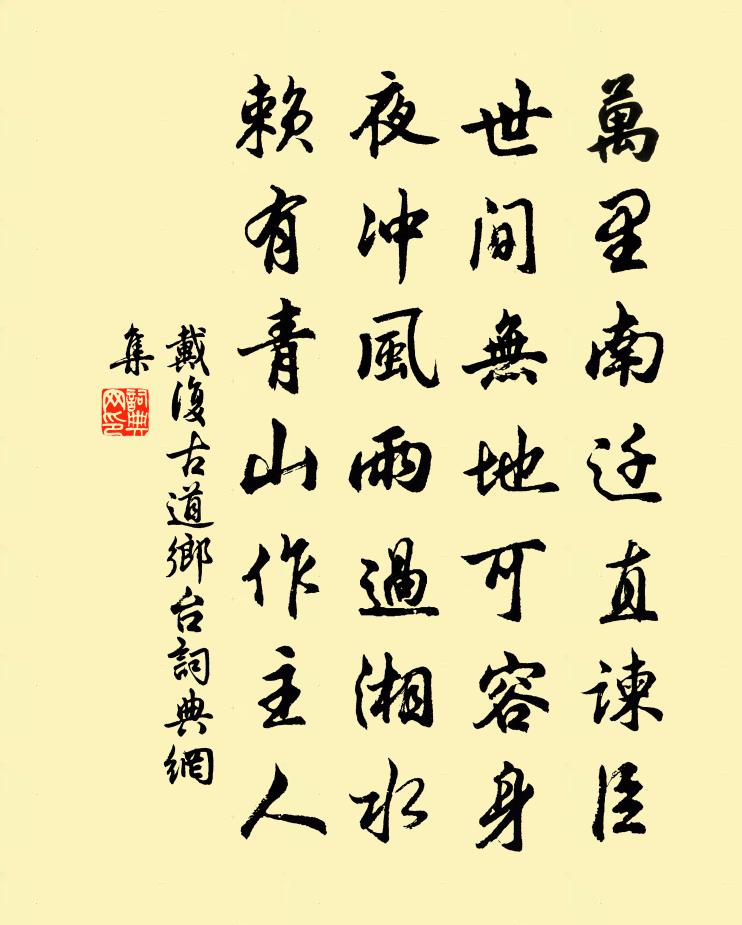 萬里南迁直諫臣
世间無地可容身
夜冲風雨過湘水
赖有青山作主人
戴復古道鄉台詞典網
集
詞典
网印